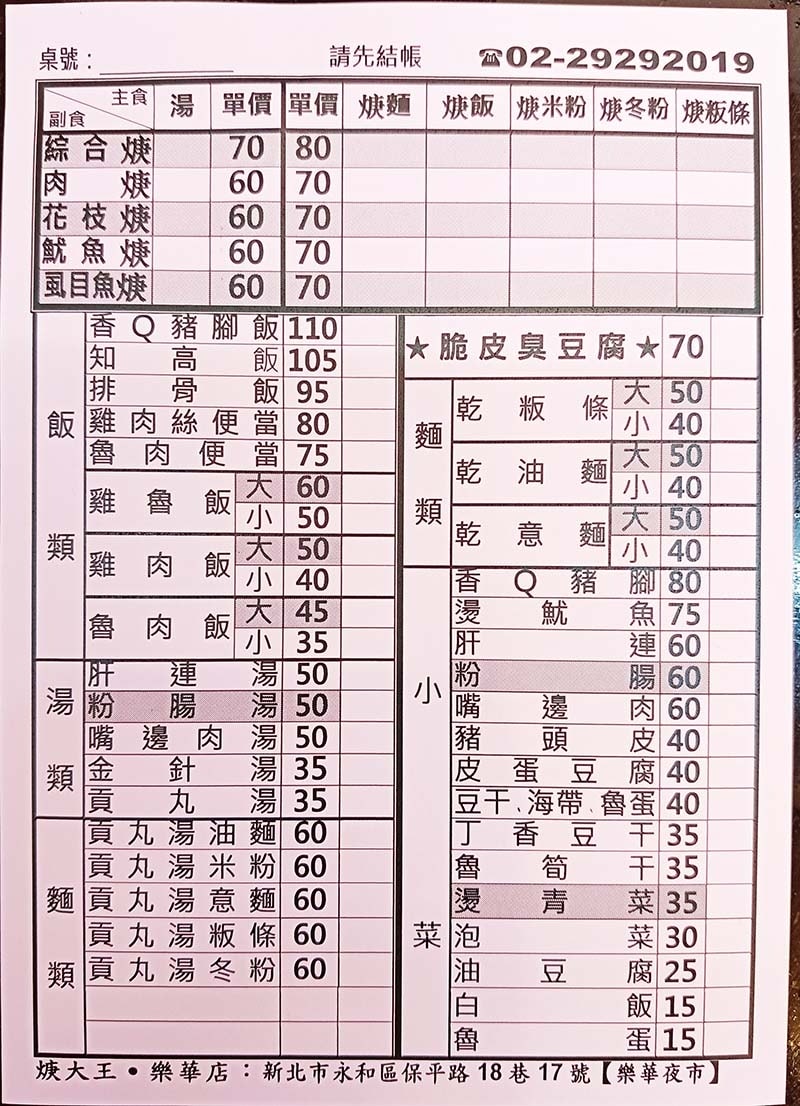 桌號：
請先結帳
☎02-29292019
主食
副食
湯 單價 單價 焿麵 焿飯 焿米粉 焿冬粉 焿粄條
綜合焿 70 80
肉焿 60 70
花枝焿 60 70
魷魚焿 60 70
虱目魚焿 60 70
飯類
香Q豬腳飯 110
知高飯 105
排骨飯 95
雞肉絲便當 80
魯肉便當 75
雞魯飯 大 60
小 50
雞肉飯 大 50
小 40
魯肉飯 大 45
小 35
湯類
肝連湯 50
粉腸湯 50
嘴邊肉湯 50
金針湯 35
貢丸湯 35
麵類
貢丸湯油麵 60
貢丸湯米粉 60
貢丸湯意麵 60
貢丸湯粄條 60
貢丸湯冬粉 60
★脆皮臭豆腐★ 70
麵類
乾粄條 大 50
小 40
乾油麵 大 50
小 40
乾意麵 大 50
小 40
小菜
香Q豬腳 80
燙魷魚 75
肝連 60
粉腸 60
嘴邊肉 60
豬頭皮 40
皮蛋豆腐 40
豆干、海帶、魯蛋 40
丁香豆干 35
魯筍干 35
燙青菜 35
泡菜 30
油豆腐 25
白飯 15
魯蛋 15
焿大王•樂華店：新北市永和區保平路18巷17號【樂華夜市】